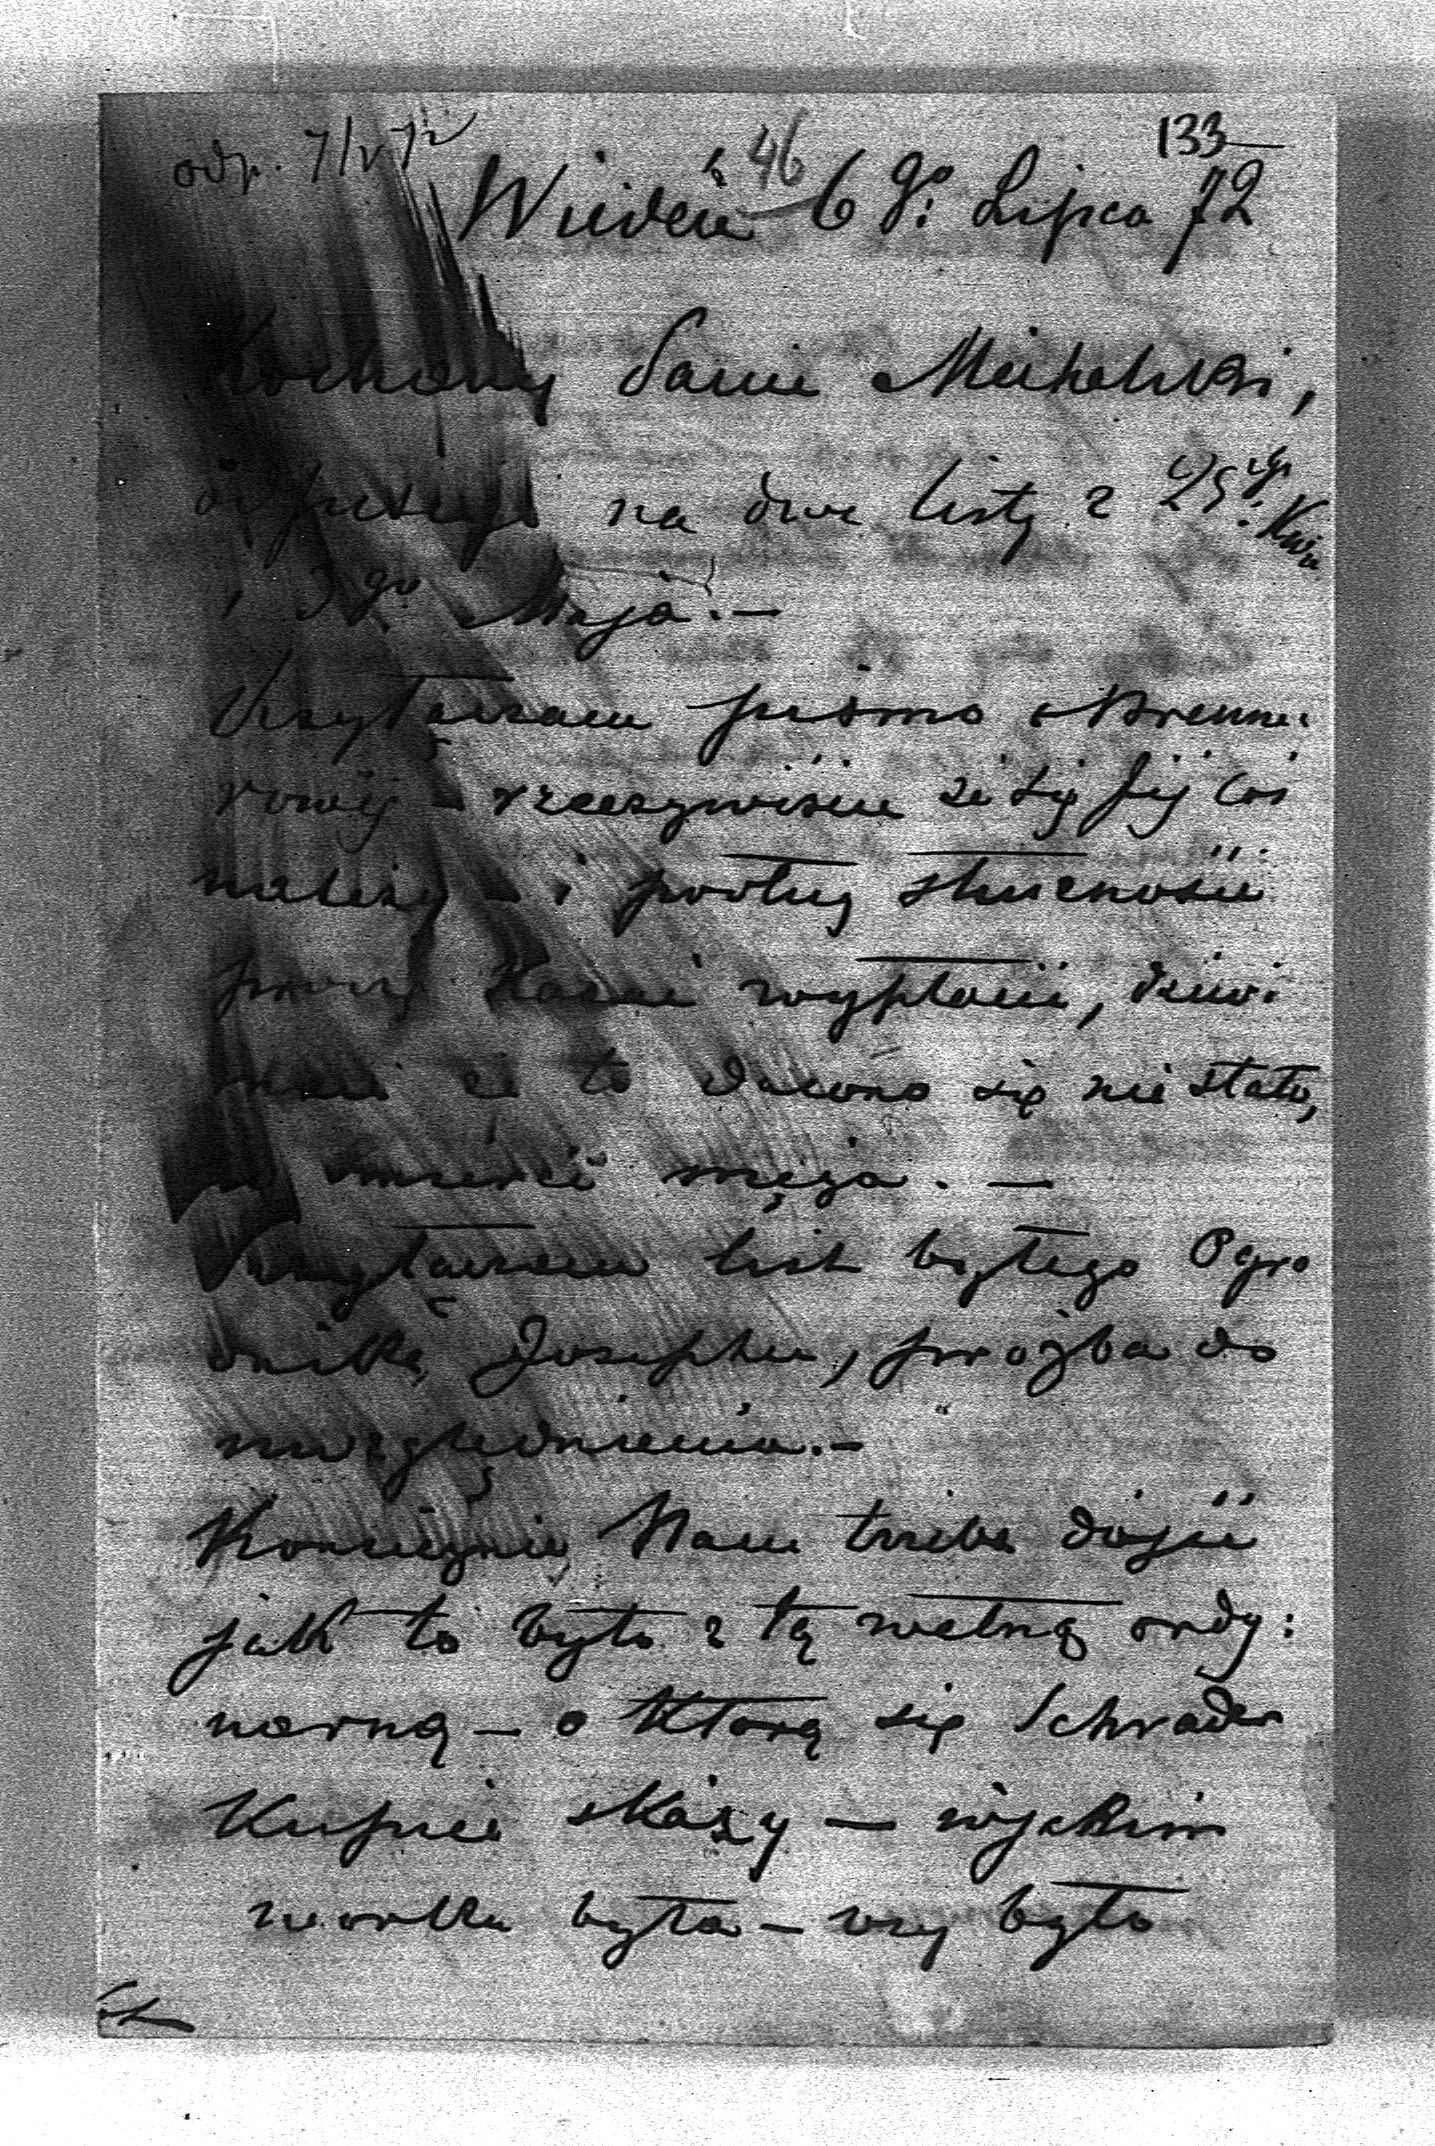 odp. 7/V 72
46
133
Wiedeń 6 go Lipca 72
Kochany Panie Michalski,
odpisuję na dwa listy z 25go Kwi
i 3go Maja. —
Przyłączam pismo Brenne:
rowéj — rzeczywiście że się Jéj coś
należy — i podług słuszności
proszę Kazać wypłacić, dziwi
mnie że to dawno się nie stało,
śmierć męża. —
Przyłączam list byłego Ogro
dnika, Josepha, proźba do
uwzględnienia. —
Koniecznie Nam trzeba dojść
jak to było z tą wełną ordy:
narną — o którą się Schrader
Kupiec skarzy — w jakim
worku była — czy było